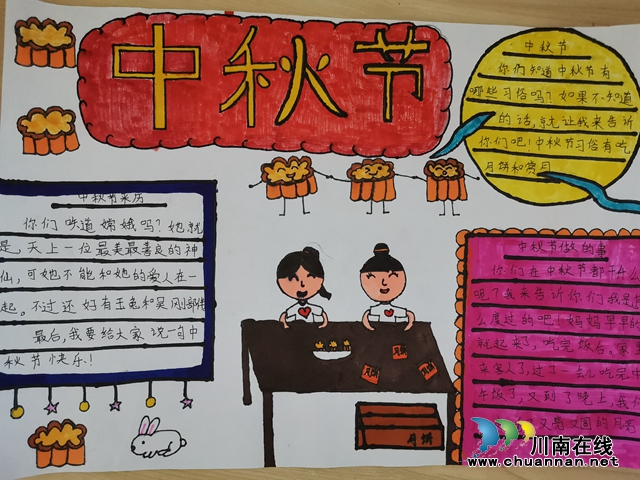 中秋节
中秋节
你们知道中秋节有
哪些习俗吗？如果不知道
的话，就让我来告诉
你们吧！中秋节习俗有吃
月饼和赏月
中秋节来历
你们知道嫦娥吗？她就
是，天上一位最美最善良的神
仙，可她不能和她的爱人在一
起。不过还好有玉兔和吴刚部传
最后，我要给大家说一句中
秋节快乐！
中秋节做的事
你们在中秋节都干什么
呢？我来告诉你们我是
么度过的吧！妈妈早早的
就起来了，吃完饭后。家
来客人了，过了一会儿吃完中
午饭了，又到了晚上，我们
又亮又圆的月亮
月饼
川南在线
www.chuannan.net